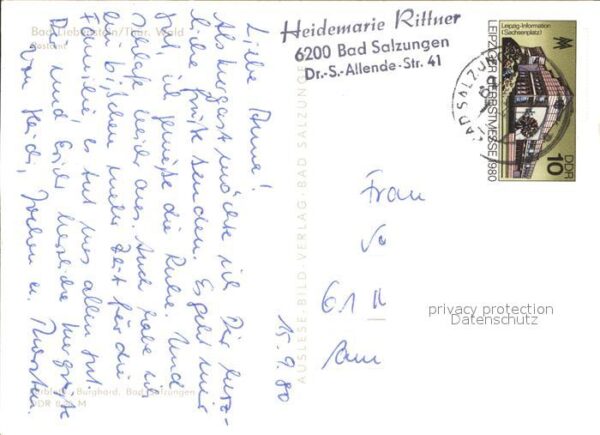 Bad Liebenstein/Thür. Wald
Postamt
Heidemarie Rittner
6200 Bad Salzungen
Dr.-S.-Allende-Str. 41
Leipzig-Information
(Sachsenplatz)
LEIPZIGER HERBSTMESSE 1980
DDR
10
BAD SALZUNGEN
15.9.80
Liebe Anne!
Als Kurgast möchte ich Dir herz-
liche Grüße senden. Es geht mir
gut, ich genieße die Ruhe. Und
schlafe leider aus. Auch habe ich
ein bißchen mehr Zeit für die
Familie, es tut uns allen gut.
Dir und herzliche Kurgrüße
von Heidi, Jochen u. Thorsten.
AUSLESE-BILD-VERLAG · BAD SALZUNGEN
Frau
privacy protection
Datenschutz
Burghard, Bad Salzungen
DDR M